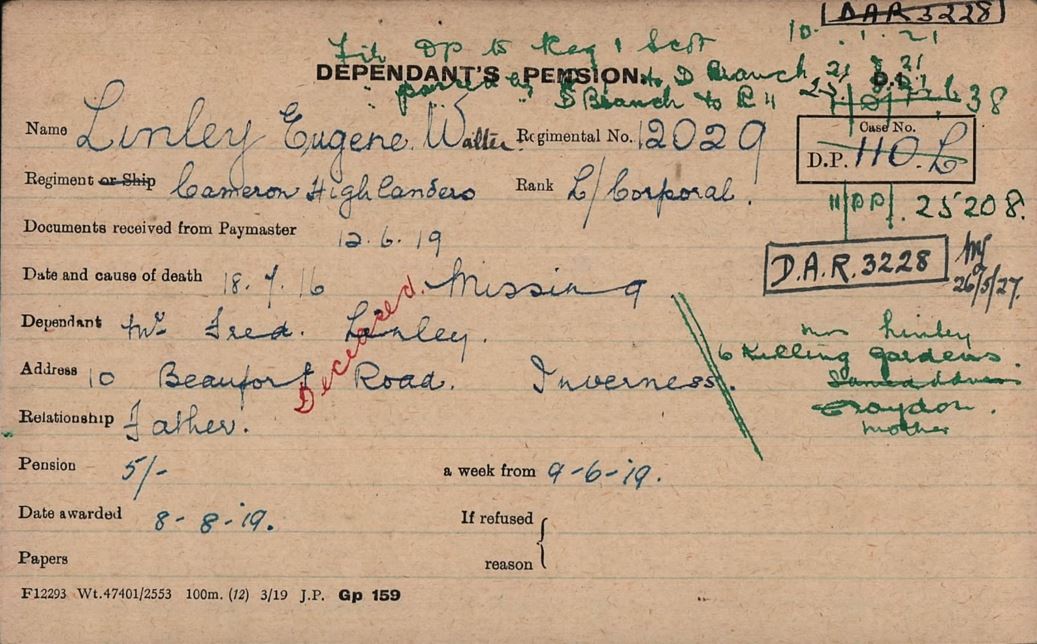 DAR 3228
File DP to Reg 1 Scot 10. 1. 21
DEPENDANT'S PENSION.
passed to D Branch 21 8 21
" " D Branch to R 4 38
Name Linley Eugene Walter. Regimental No. 12029
Case No.
D.P. 110. L
Regiment or Ship Cameron Highlanders Rank L/Corporal.
11/DP/. 25208.
Documents received from Paymaster 12.6.19
D.A.R. 3228
26/5/27.
Date and cause of death 18.7.16 Missing
Deceased.
Dependant Mr Fred. Linley.
Mrs Linley
6 Killing gardens.
Address 10 Beaufort Road. Inverness.
Croydon.
Mother
Relationship Father.
Pension 5/- a week from 9-6-19.
Date awarded 8-8-19. If refused
reason
Papers
F12293 Wt.47401/2553 100m. (12) 3/19 J.P. Gp 159